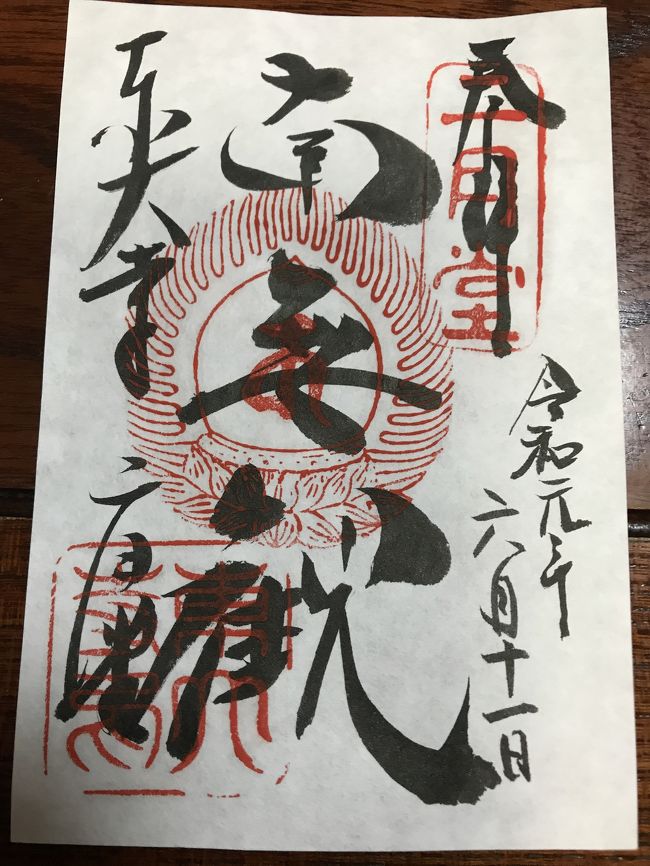 奉拝
二月堂
令和元年
六月十一日
南無観
東大寺
二月堂